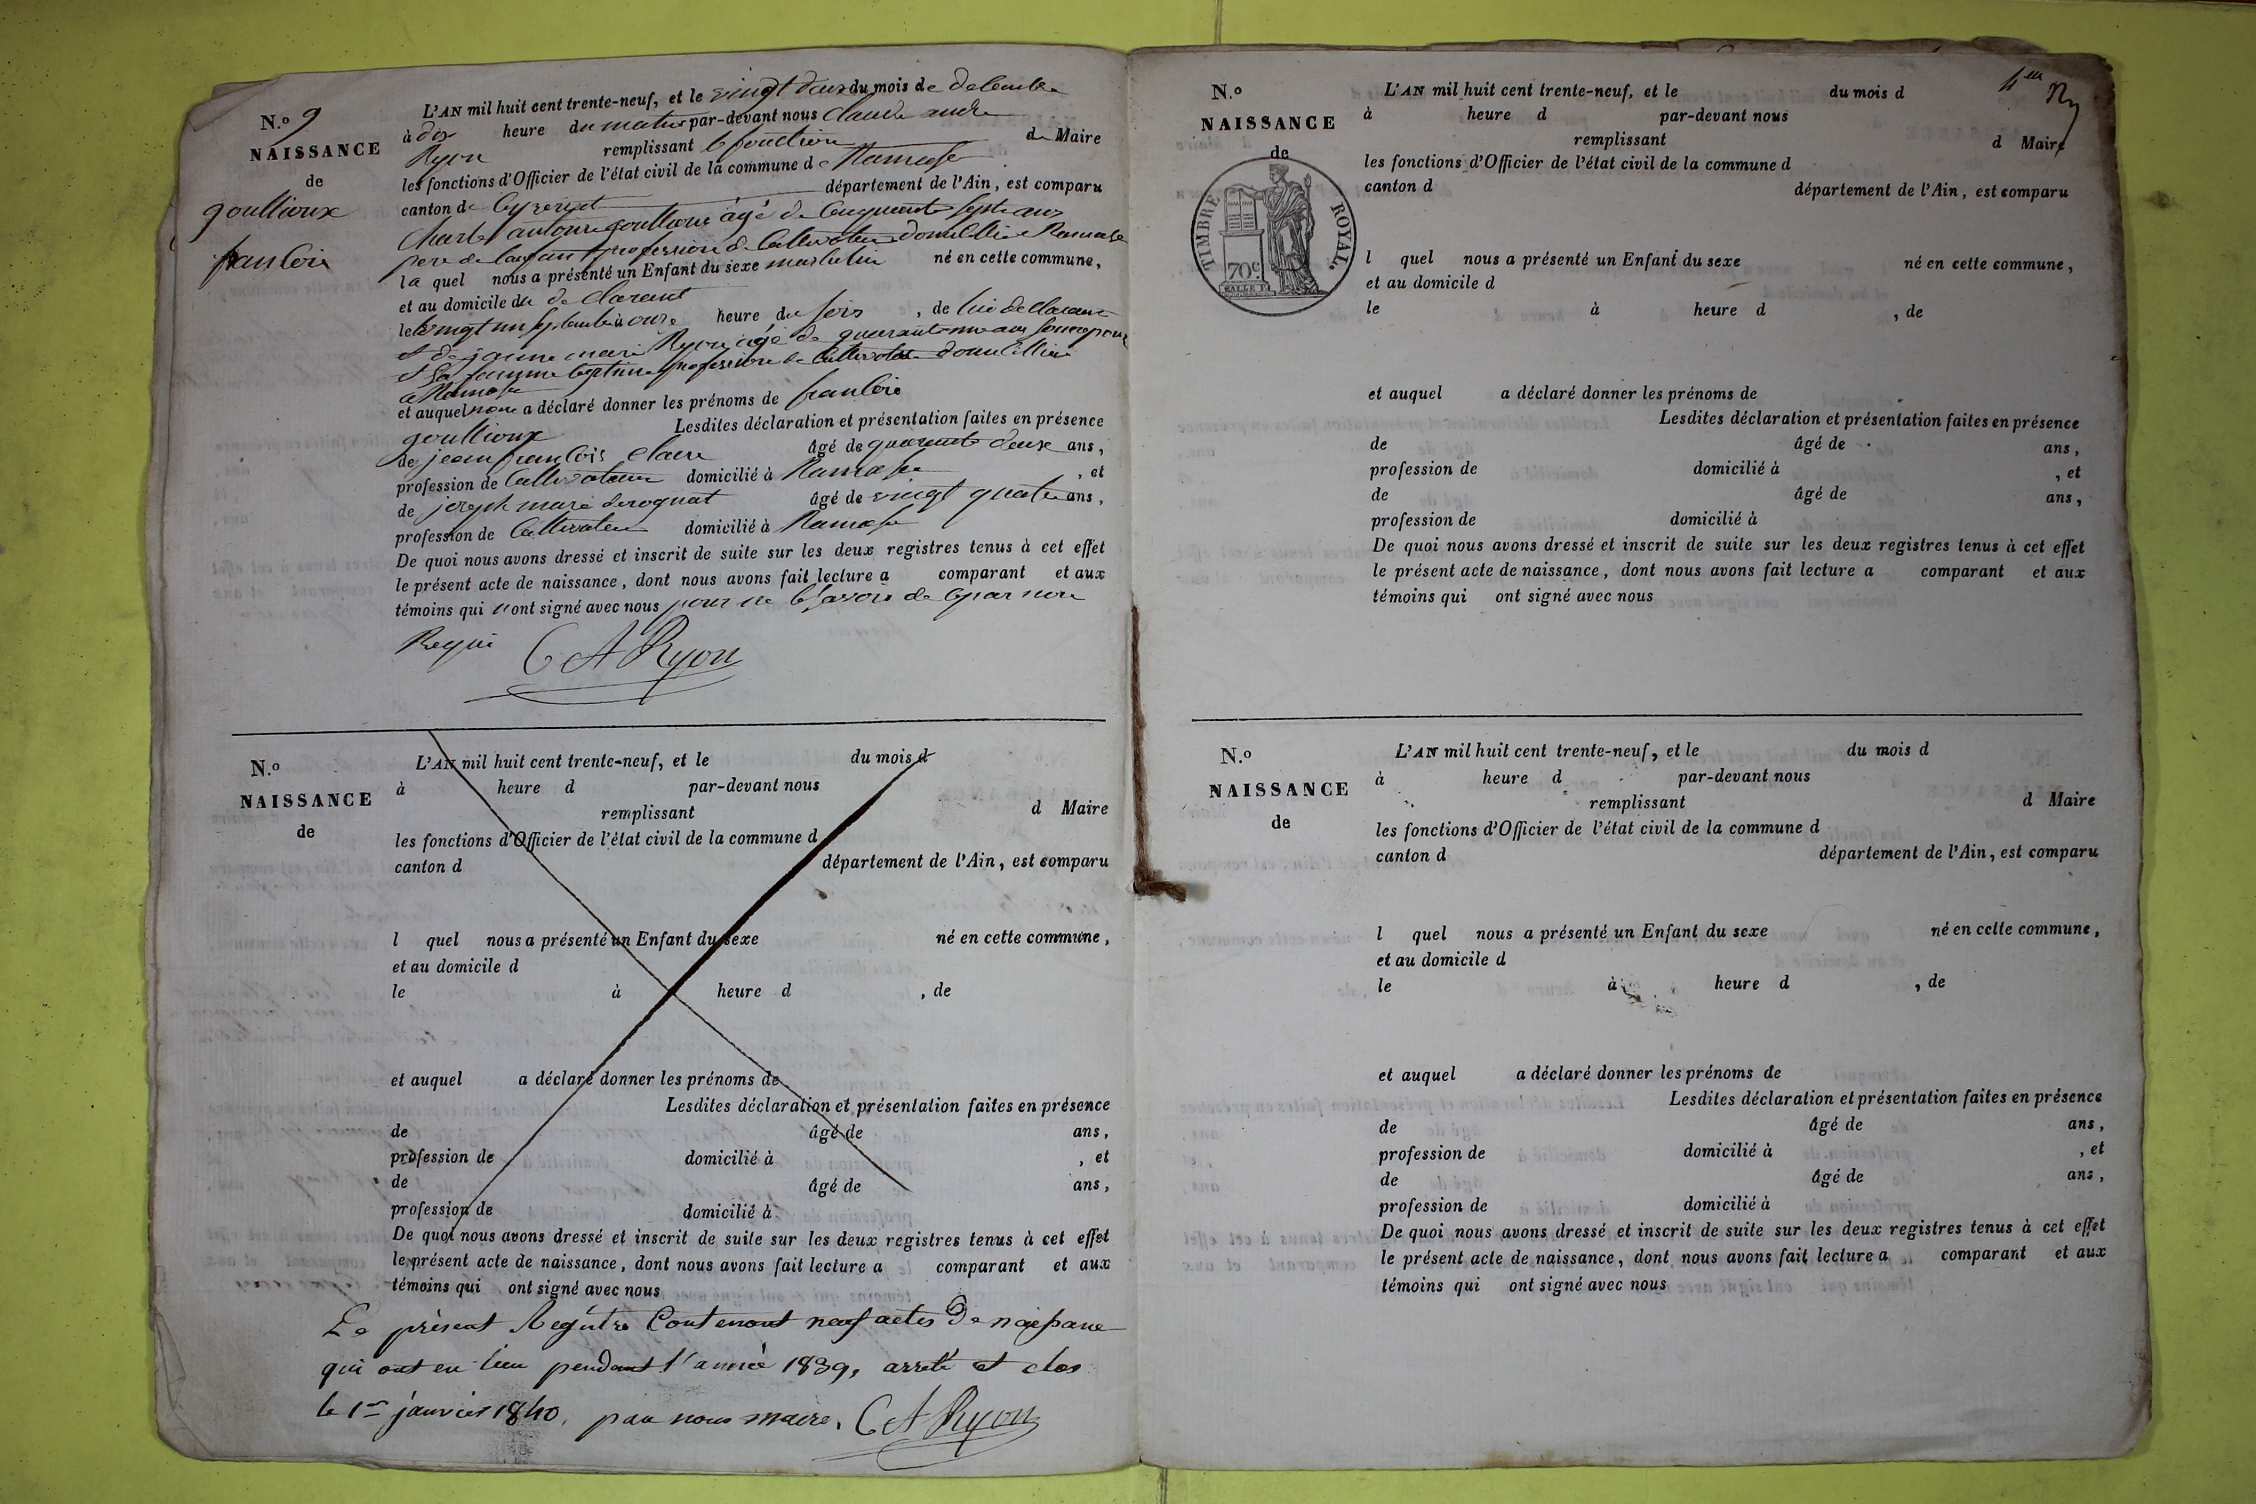 N.o 9
NAISSANCE
de
goullioux
francois
L'AN mil huit cent trente-neuf, et le vingt deux du mois de decembre
à dix heure du matin par-devant nous claude andre
Ryon remplissant le fonction de Maire
les fonctions d'Officier de l'état civil de la commune de Ramasse
canton de Ceyzeriat département de l'Ain, est comparu
Charle antoine goullioux âgé de cinquante septe ans
pere de lanfant profession de Cultivateur domicillie a Ramasse
la quel nous a présenté un Enfant du sexe masculin né en cette commune,
et au domicile du de clarant
le vingt un à onze heure du soir, de lui declarant
et de jeanne marie Ryon âgé de quarante ans
et sa famme profession de Cultivateur domicillie
a Ramasse
et auquel nous a déclaré donner les prénoms de francois
goullioux Lesdites déclaration et présentation faites en présence
de jean francois claire âgé de quarante deux ans,
profession de Cultivateur domicilié à Ramasse, et
de joseph marie âgé de vingt quatre ans,
profession de Cultivateur domicilié à Ramasse
De quoi nous avons dressé et inscrit de suite sur les deux registres tenus à cet effet
le présent acte de naissance, dont nous avons fait lecture a comparant et aux
témoins qui n'ont signé avec nous pour ne le savoir de
Requi C A Ryon
N.o
NAISSANCE
de
L'AN mil huit cent trente-neuf, et le du mois d
à heure d par-devant nous
remplissant d Maire
les fonctions d'Officier de l'état civil de la commune d
canton d département de l'Ain, est comparu
l quel nous a présenté un Enfant du sexe né en cette commune,
et au domicile d
le à heure d , de
et auquel a déclaré donner les prénoms de
Lesdites déclaration et présentation faites en présence
de âgé de ans,
profession de domicilié à , et
de âgé de ans,
profession de domicilié à
De quoi nous avons dressé et inscrit de suite sur les deux registres tenus à cet effet
le présent acte de naissance, dont nous avons fait lecture a comparant et aux
témoins qui ont signé avec nous
Le présent Registre Contenant neuf actes De naissance
qui ont eu lieu pendant l'année 1839, arreté et clos
le 1er janvier 1840, par nous maire, C A Ryon
4eme Ry
N.o
NAISSANCE
de
TIMBRE ROYAL.
70c.
L'AN mil huit cent trente-neuf, et le du mois d
à heure d par-devant nous
remplissant d Maire
les fonctions d'Officier de l'état civil de la commune d
canton d département de l'Ain, est comparu
l quel nous a présenté un Enfant du sexe né en cette commune,
et au domicile d
le à heure d , de
et auquel a déclaré donner les prénoms de
Lesdites déclaration et présentation faites en présence
de âgé de ans,
profession de domicilié à , et
de âgé de ans,
profession de domicilié à
De quoi nous avons dressé et inscrit de suite sur les deux registres tenus à cet effet
le présent acte de naissance, dont nous avons fait lecture a comparant et aux
témoins qui ont signé avec nous
N.o
NAISSANCE
de
L'AN mil huit cent trente-neuf, et le du mois d
à heure d par-devant nous
remplissant d Maire
les fonctions d'Officier de l'état civil de la commune d
canton d département de l'Ain, est comparu
l quel nous a présenté un Enfant du sexe né en cette commune,
et au domicile d
le à heure d , de
et auquel a déclaré donner les prénoms de
Lesdites déclaration et présentation faites en présence
de âgé de ans,
profession de domicilié à , et
de âgé de ans,
profession de domicilié à
De quoi nous avons dressé et inscrit de suite sur les deux registres tenus à cet effet
le présent acte de naissance, dont nous avons fait lecture a comparant et aux
témoins qui ont signé avec nous